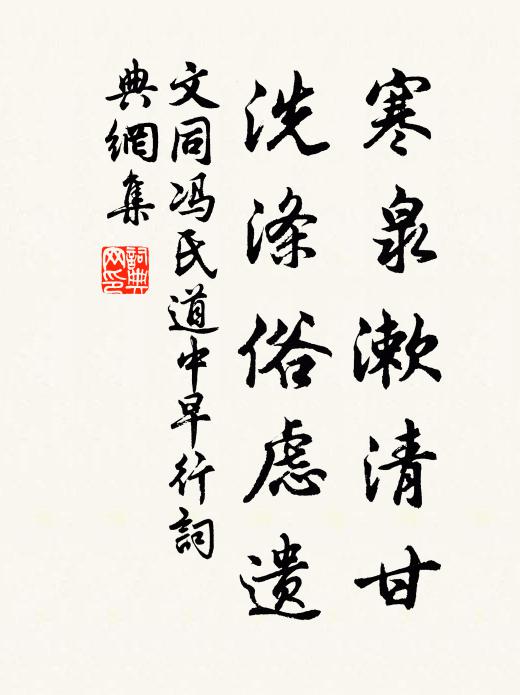 寒泉漱清甘
洗涤俗虑遗
文同冯氏道中早行詞
典網集
詞典
网印